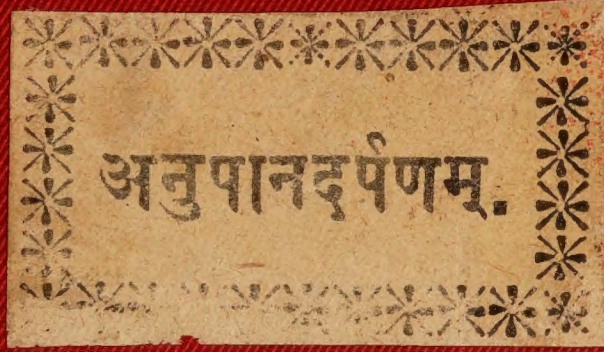 अनुपानदर्पणम्.